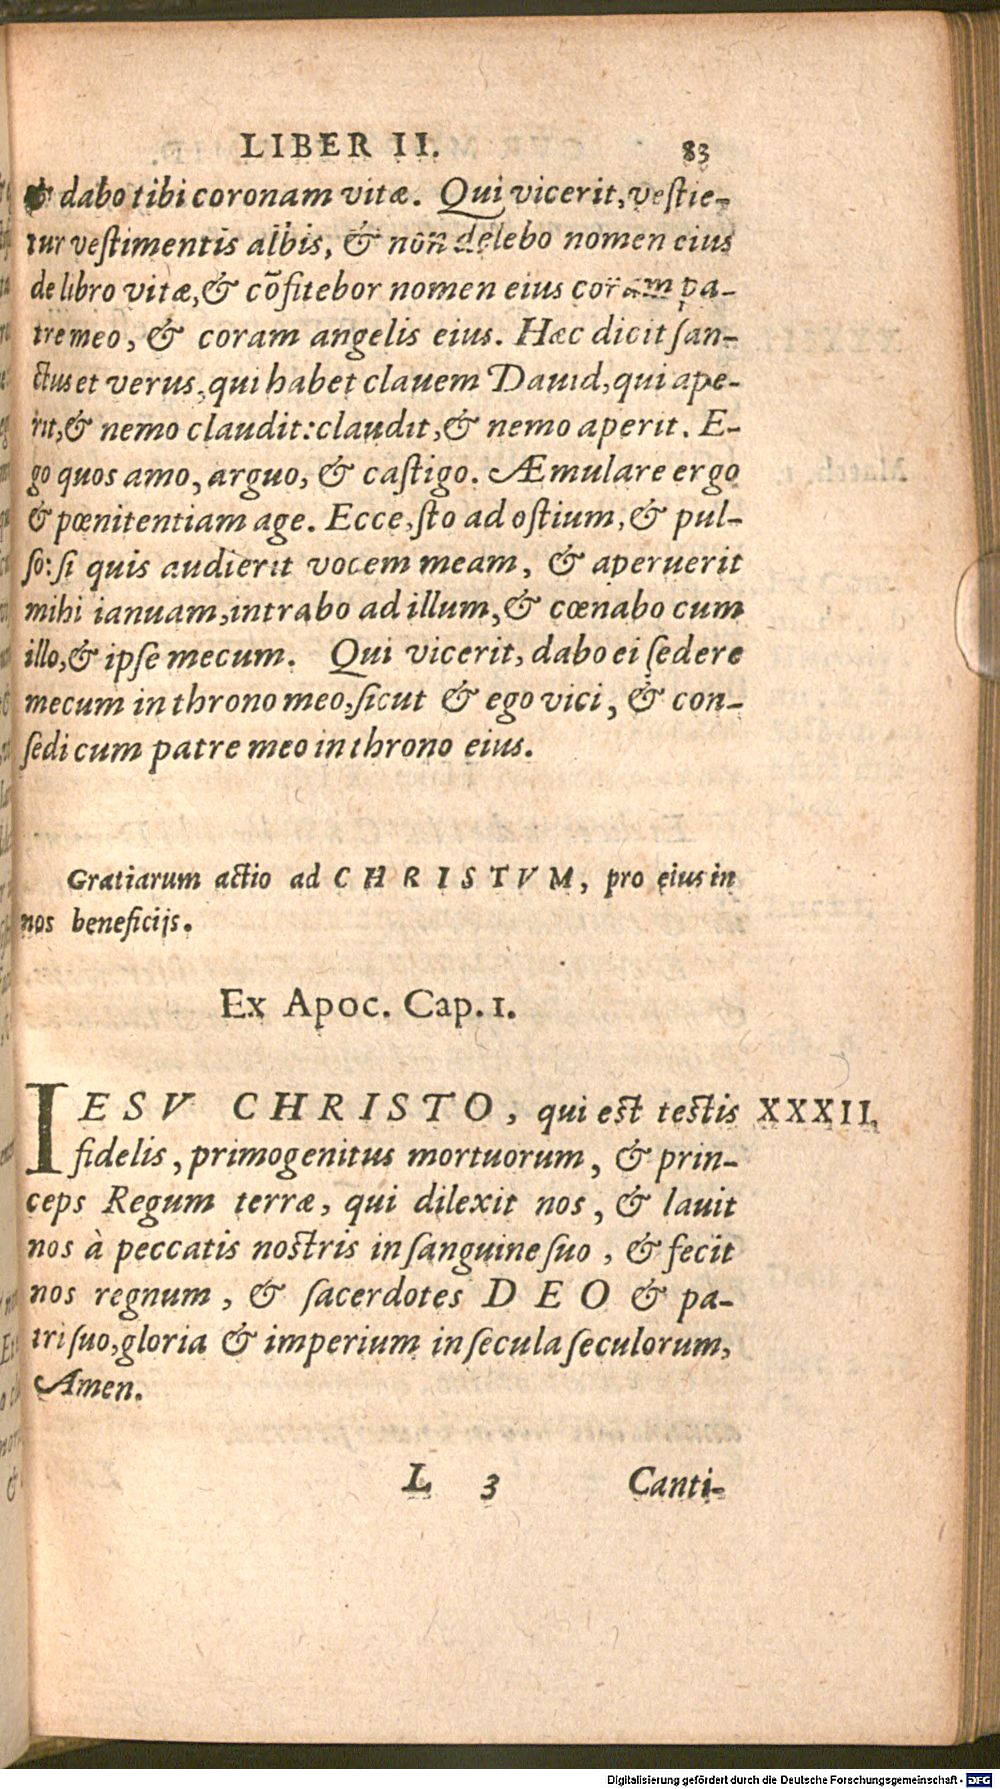 LIBER II. 83
& dabo tibi coronam vitæ. Qui vicerit, vestie-
tur vestimentis albis, & non delebo nomen eius
de libro vitæ, & cõfitebor nomen eius coram pa-
tre meo, & coram angelis eius. Hæc dicit san-
ctus et verus, qui habet clauem Dauid, qui ape-
rit, & nemo claudit: claudit, & nemo aperit. E-
go quos amo, arguo, & castigo. Æmulare ergo
& pœnitentiam age. Ecce, sto ad ostium, & pul-
so: si quis audierit vocem meam, & aperuerit
mihi ianuam, intrabo ad illum, & cœnabo cum
illo, & ipse mecum. Qui vicerit, dabo ei sedere
mecum in throno meo, sicut & ego vici, & con-
sedi cum patre meo in throno eius.
Gratiarum actio ad CHRISTVM, pro eius in
nos beneficijs.
Ex Apoc. Cap. 1.
IESV CHRISTO, qui est testis XXXII.
fidelis, primogenitus mortuorum, & prin-
ceps Regum terræ, qui dilexit nos, & lauit
nos à peccatis nostris in sanguine suo, & fecit
nos regnum, & sacerdotes DEO & pa-
tri suo, gloria & imperium in secula seculorum,
Amen.
L 3 Canti-
Digitalisierung gefördert durch die Deutsche Forschungsgemeinschaft - DFG